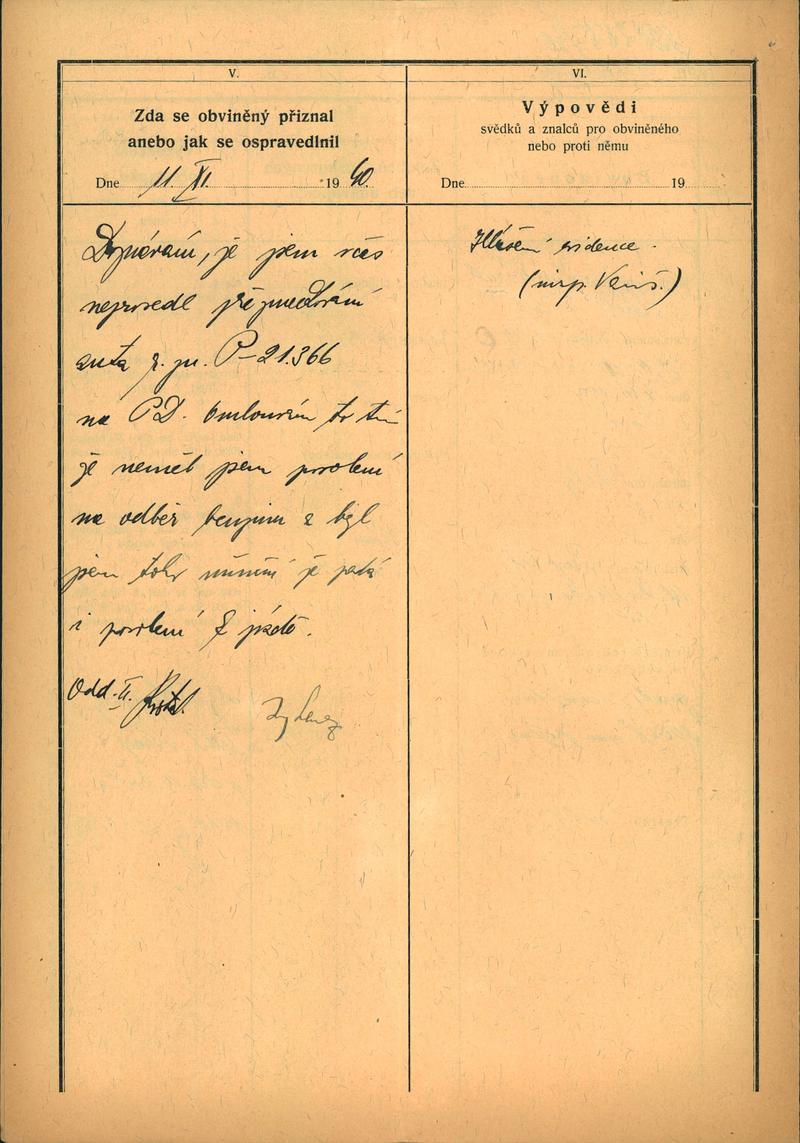 V.
Zda se obviněný přiznal
anebo jak se ospravedlnil
Dne 11. XI. 1940.
Doznávám, že jsem včas
neprovedl
auta z. zn. P-21.366
na PD. omlouvám to tím
že neměl jsem povolení
na odběr benzinu a byl
jsem toho mínění že
i povolení k jízdě.
Odd. II.
VI.
Výpovědi
svědků a znalců pro obviněného
nebo proti němu
Dne 19
Hlášení evidence.
(insp.